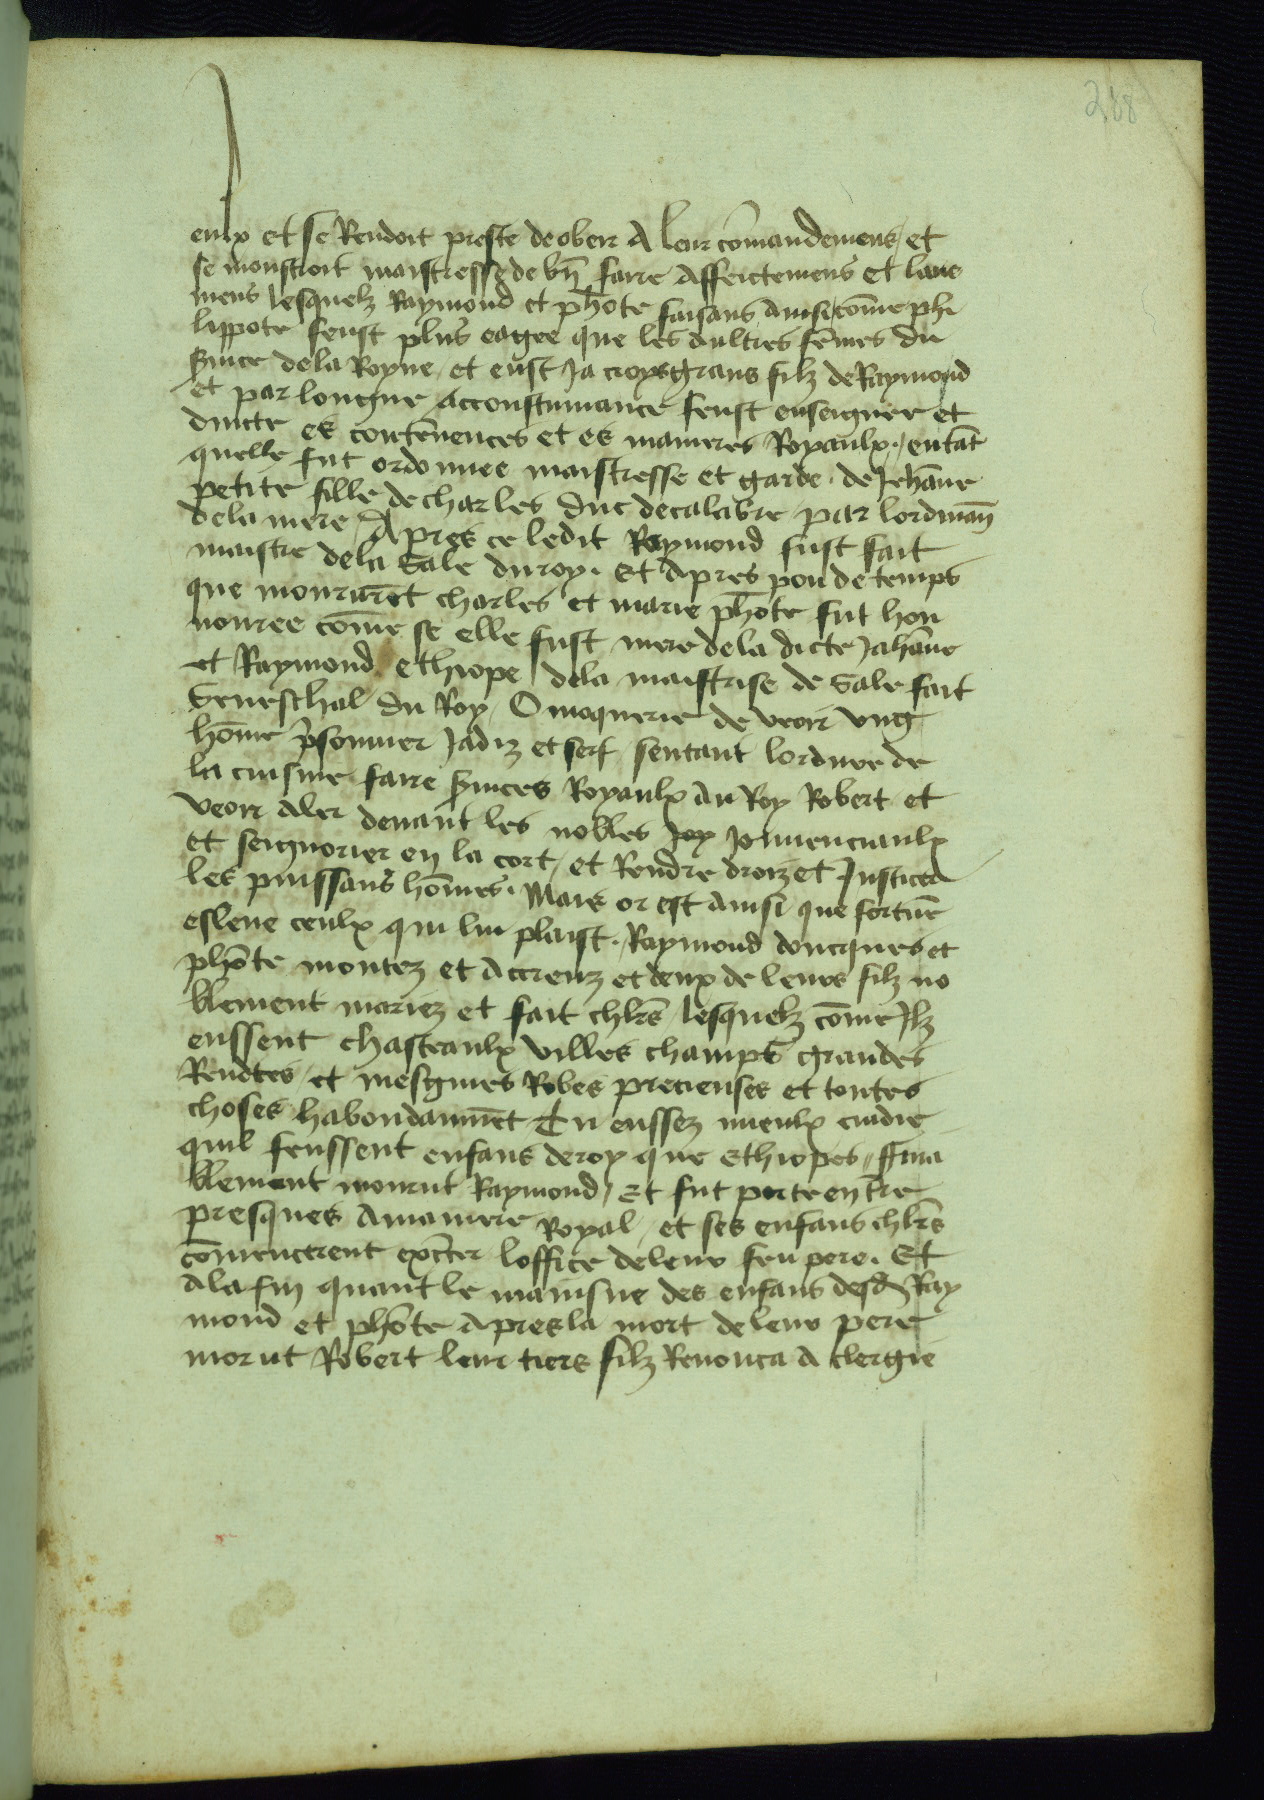 288
eulx et se Rendoit preste de obeir A leur cōmandemens / et
se monstroit maistresse de bn̄ faire Affeictemens et laue
mens lesquelz Raymond et ph̄ote faisans Ainsi cōme phi
lippote feust plus eagee que les aultres fēmes du
seruice de la Royne / et eust Ja troys grans filz de Raymond
et par longue Accoustumance feust enseignee et
duicte es contenences et es manieres Royaulx / entāt
quelle fut ordonnee maistresse et garde de Jehāne
petite fille de charles duc de calabre par lordināñ
de la mere / Apres ce ledit Raymond fust fait
maistre de la sale du roy. Et Apres pou de temps
que moururēt charles et marie ph̄ote fut hon
nouree cōme se elle fust mere de la dicte Jahāne
et Raymond ethiope de la maistrise de sale fait
Seneschal du Roy / O moquerie de veoir vng
hōme p̄sonnier Jadiz et serf sentant lordure de
la cuisine faire seruices Royaulx Au Roy Robert et
veoir Aler deuant les nobles Joy Jouuenciaulx
et seignorier en la cort / et Rendre droiz et Justice a
les puissans hōmes. Mais or est Ainsi que fortūe
eslieue ceulx qui lui plaist. Raymond doncques et
ph̄ote montez et Accreuz et deux de leurs filz no
blement mariez et fait chl̄rs / lesquelz cōme Ilz
eussent chasteaulx villes champs grandes
Rendtes et mesgnies Robes precieuses et toutes
choses habondanmēt Tu eussez mieulx cuidie
quil feussent enfans de roy que Ethiopes / ffina
blement mourut Raymond / Et fut porte en t̄re
presques A maniere Royal / et ses enfans chl̄rs
cōmencerent exc̄ter loffice de leur feu pere. Et
A la fin quant le mainsne des enfans desd̄ Ray
mond et ph̄ote Apres la mort de leur pere
morut Robert leur tiers filz Renonca A clergie